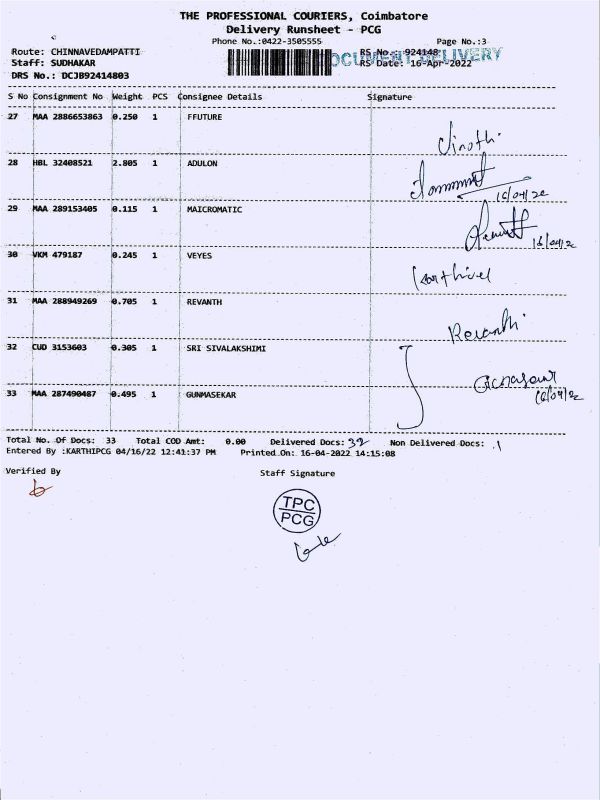 THE PROFESSIONAL COURIERS, Coimbatore
Delivery Runsheet - PCG
Phone No.:0422-3505555 Page No.:3
Route: CHINNAVEDAMPATTI RS No.: 924148
DOCUMENT DELIVERY
Staff: SUDHAKAR RS Date: 16-Apr-2022
DRS No.: DCJB92414803
S No Consignment No Weight PCS Consignee Details Signature
27 MAA 2886653863 0.250 1 FFUTURE
Jinothi
28 HBL 32408521 2.805 1 ADULON
16/04/22
29 MAA 289153405 0.115 1 MAICROMATIC
16/04/2
30 VKM 479187 0.245 1 VEYES
Karthivel
31 MAA 288949269 0.705 1 REVANTH
Revanthi
32 CUD 3153603 0.305 1 SRI SIVALAKSHIMI
33 MAA 287490487 0.495 1 GUNMASEKAR
16/04/22
Total No. Of Docs: 33 Total COD Amt: 0.00 Delivered Docs: 32 Non Delivered Docs: 1
Entered By :KARTHIPCG 04/16/22 12:41:37 PM Printed On: 16-04-2022 14:15:08
Verified By Staff Signature
TPC
PCG